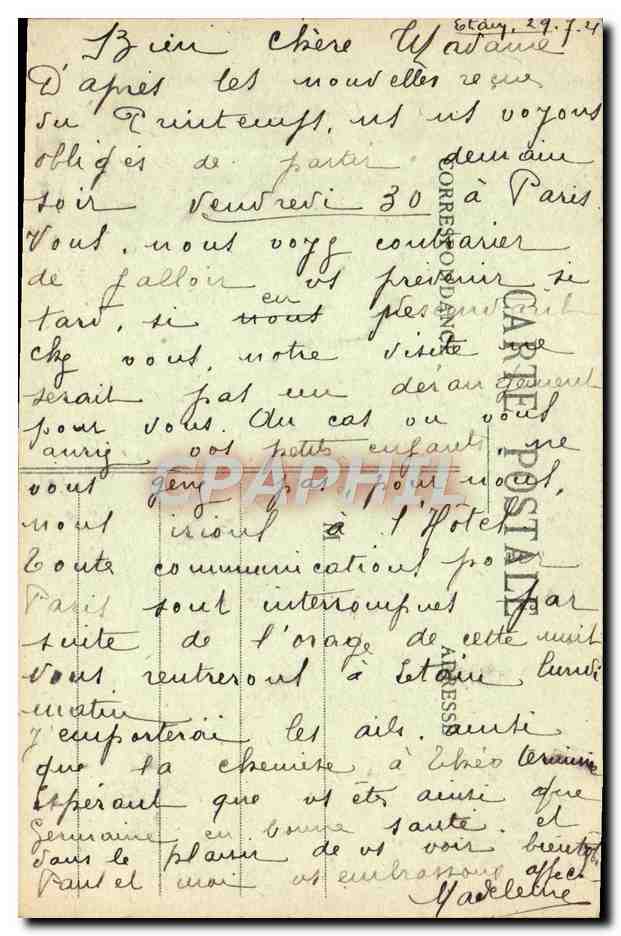 Etain, 29.7.2
Bien chère Madame
D'après les nouvelles reçues
du Printemps, ns ns voyons
obligés de partir demain
soir vendredi 30 à Paris.
Vous, nous voyez contrarier
de falloir vs prévenir si
tard, si nous en descendant
chez vous, notre visite ne
serait pas un dérangement
pour vous. Au cas ou vous
auriez vos petits enfants, ne
vous gênez pas, pour nous,
nous irions à l'Hôtel
Toute communications pour
Paris sont interrompues par
suite de l'orage de cette nuit
Nous rentrerons à Etain lundi
matin
J'emporterai les ails, ainsi
que la chemise à Théo terminée
Espérant que vs êtes ainsi que
Germaine en bonne santé, et
dans le plaisir de vs voir bientôt
Paul et moi vs embrassons affec.
Madeleine
CARTE POSTALE
CORRESPONDANCE
ADRESSE
CPAPHIL